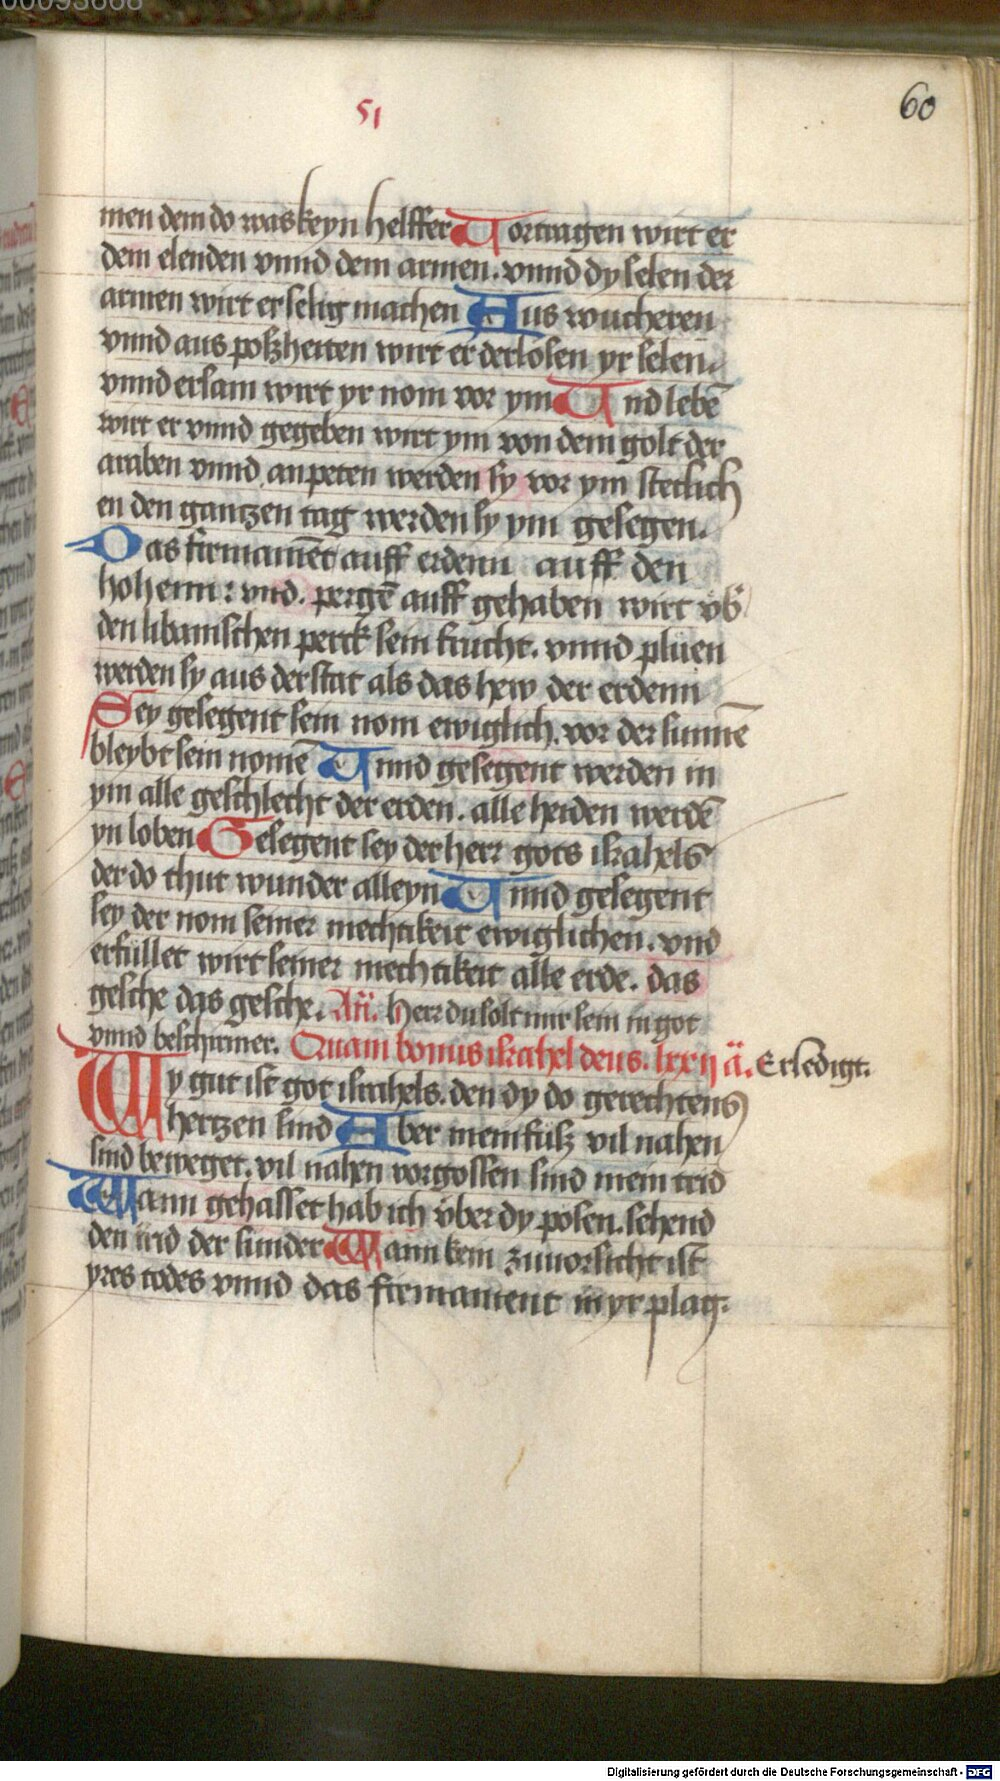 00093668
51
60
men dem do was keyn helffer Vortragen wirt er
dem elenden vnnd dem armen. vnnd dy selen der
armen wirt er selig machen Aus wucheren
vnnd aus poszheiten wirt er derlosen yr selen.
vnnd ersam wirt yr nom vor ym Vnd lebē
wirt er vnnd gegeben wirt ym von dem golt der
araben vnnd anpeten werden sy vor ym stetlich
en den gantzen tag werden sy ym gesegen.
Das firmamēt auff erdenn auff den
hohenn: vnd. pergē auff gehaben wirt vb̄
den libanischen perck sein frucht. vnnd pluen
werden sy aus der stat als das hew der erdenn
Sey gesegent sein nom ewiglich. vor der sunnē
bleybt sein nomē Vnnd gesegent werden in
ym alle geschlecht der erden. alle heiden werdē
yn loben Gesegent sey der herr gots israhels
der do thut wunder alleyn Vnnd gesegent
sey der nom seiner mechtikeit ewiglichen. vnd
erfullet wirt seiner mechtikeit alle erde. das
gesche das gesche. Añ. Herr du solt mir sein in got
vnnd beschirmer. Quam bonus israhel deus. lxxij ä. Erledigt.
Wy gut ist got israhels. den dy do gerechtens
hertzen sind Aber mein füsz vil nahen
sind beweget. vil nahen vorgossen sind mein trid
Wann gehasset hab ich vber dy posen. sehend
den frid der sunder Wann kein zuuorsicht ist
yres todes vnnd das firmament in yr plag.
Digitalisierung gefördert durch die Deutsche Forschungsgemeinschaft - DFG